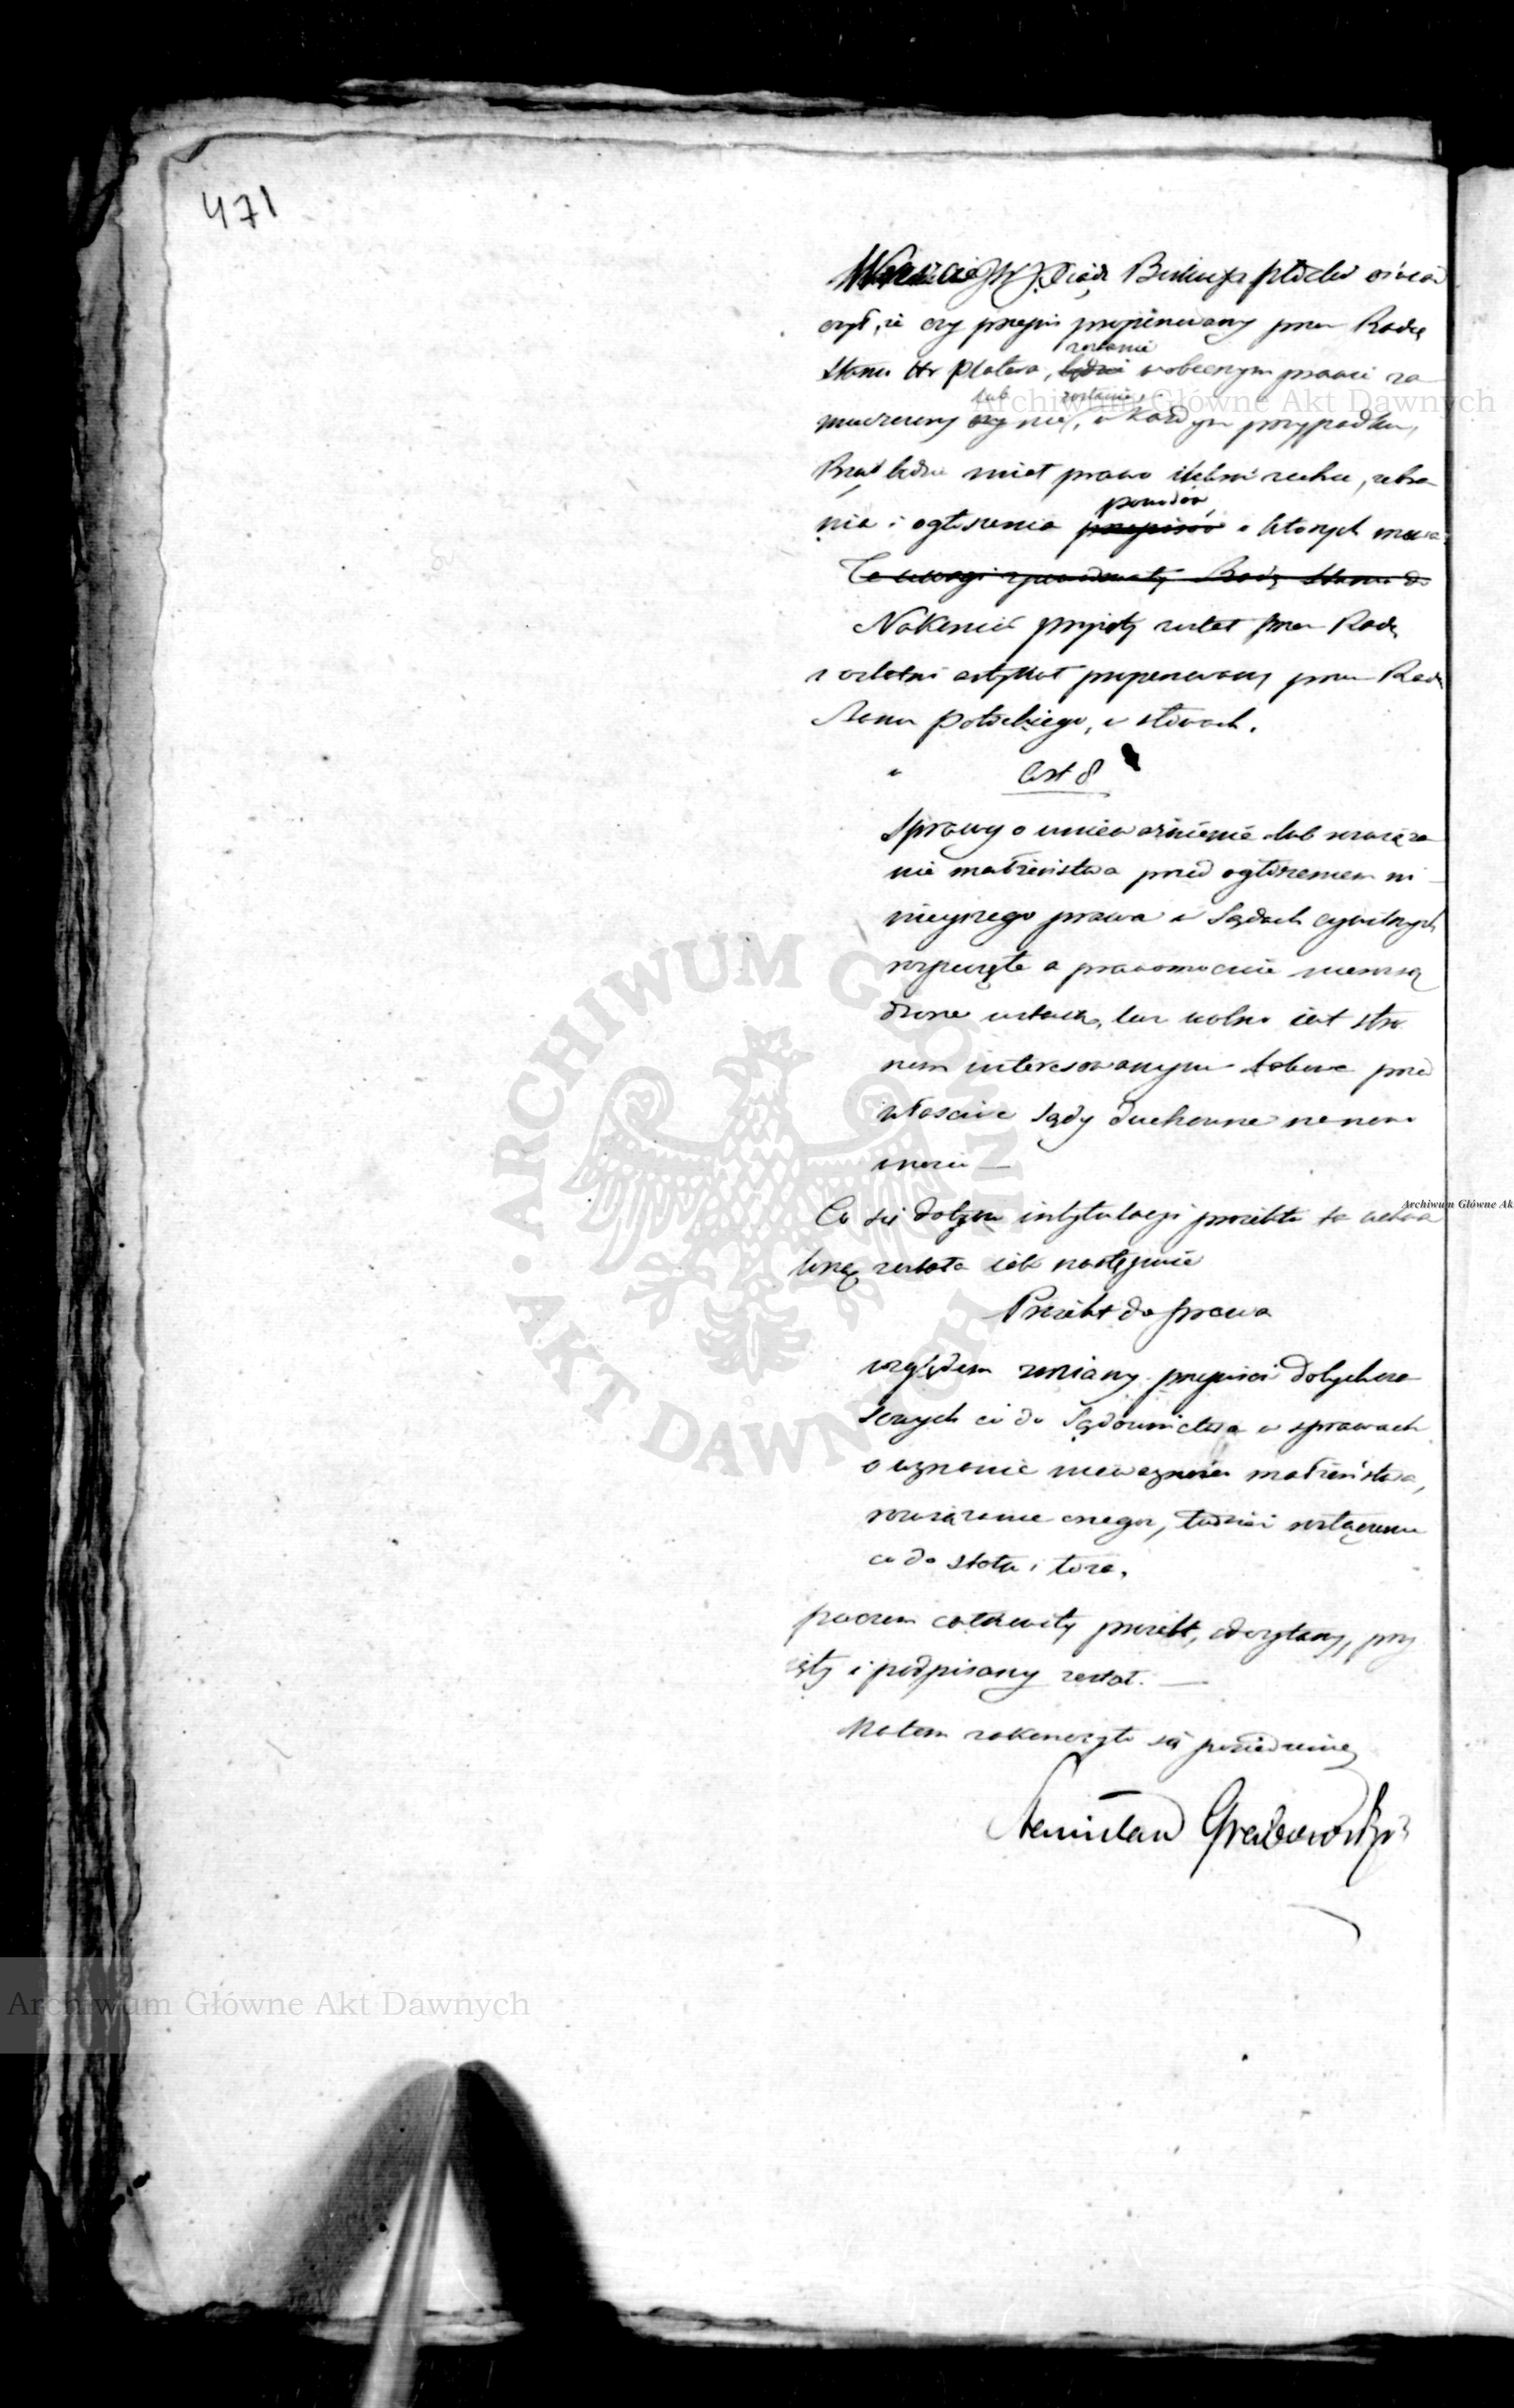 471
JW. Xiądz Biskup płocki oświad
czył, że czy przepis proponowany przez Radcę
Stanu Hr Platera, będzie zostanie w obecnym prawie za
mieszczony czy lub nie zostanie, w każdym przypadku,
Rząd będzie miał prawo zebra
nia i ogłoszenia przepisów powodów, o których mowa.
Te uwagi Radę Stanu do
Nakoniec przyjęty został przez Radę
ostatni artykuł proponowany przez Radcę
Stanu Potockiego, w słowach.
" Art 8
Sprawy o unieważnienie lub rozwiąza
nie małżeństwa przed ogłoszeniem ni
nieyszego prawa w Sądach cywilnych
rozpoczęte a prawomocnie nierozsą
dzone ustają, lecz wolno iest stro
nom interessowanym takowe przed
właściwe Sądy duchowne na nowo
wnosić —
Co się dotycze intytulacyi proiektu ta uchwa
loną została iak następuie
Proiekt do prawa
względem zmiany przepisów dotychcza
sowych co do Sądownictwa w sprawach
o uznanie nieważności małżeństwa,
rozwiązanie onego, tudzież rozłączenie
co do stołu i łoża.
poczem całkowity proiekt, odczytany, przy
ięty i podpisany został. —
Na tem zakończyło się posiedzenie
Stanisław Grabowski
Archiwum Główne Akt Dawnych
Archiwum Główne Ak
ARCHIWUM GŁÓWNE • AKT DAWNYCH •
Archiwum Główne Akt Dawnych